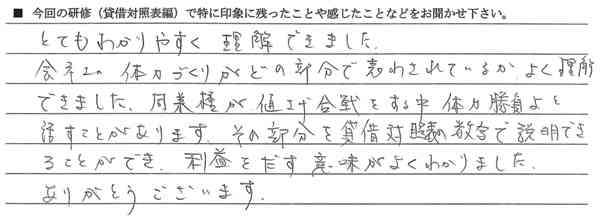 ■ 今回の研修（貸借対照表編）で特に印象に残ったことや感じたことなどをお聞かせ下さい。
とてもわかりやすく理解できました。
会社の体力づくりがどの部分で表わされているか、よく理解
できました。同業種が値下げ合戦をする中 体力勝負よと
話すことがあります。その部分を貸借対照表の数字で説明でき
ることができ、利益をだす意味がよくわかりました。
ありがとうございます。